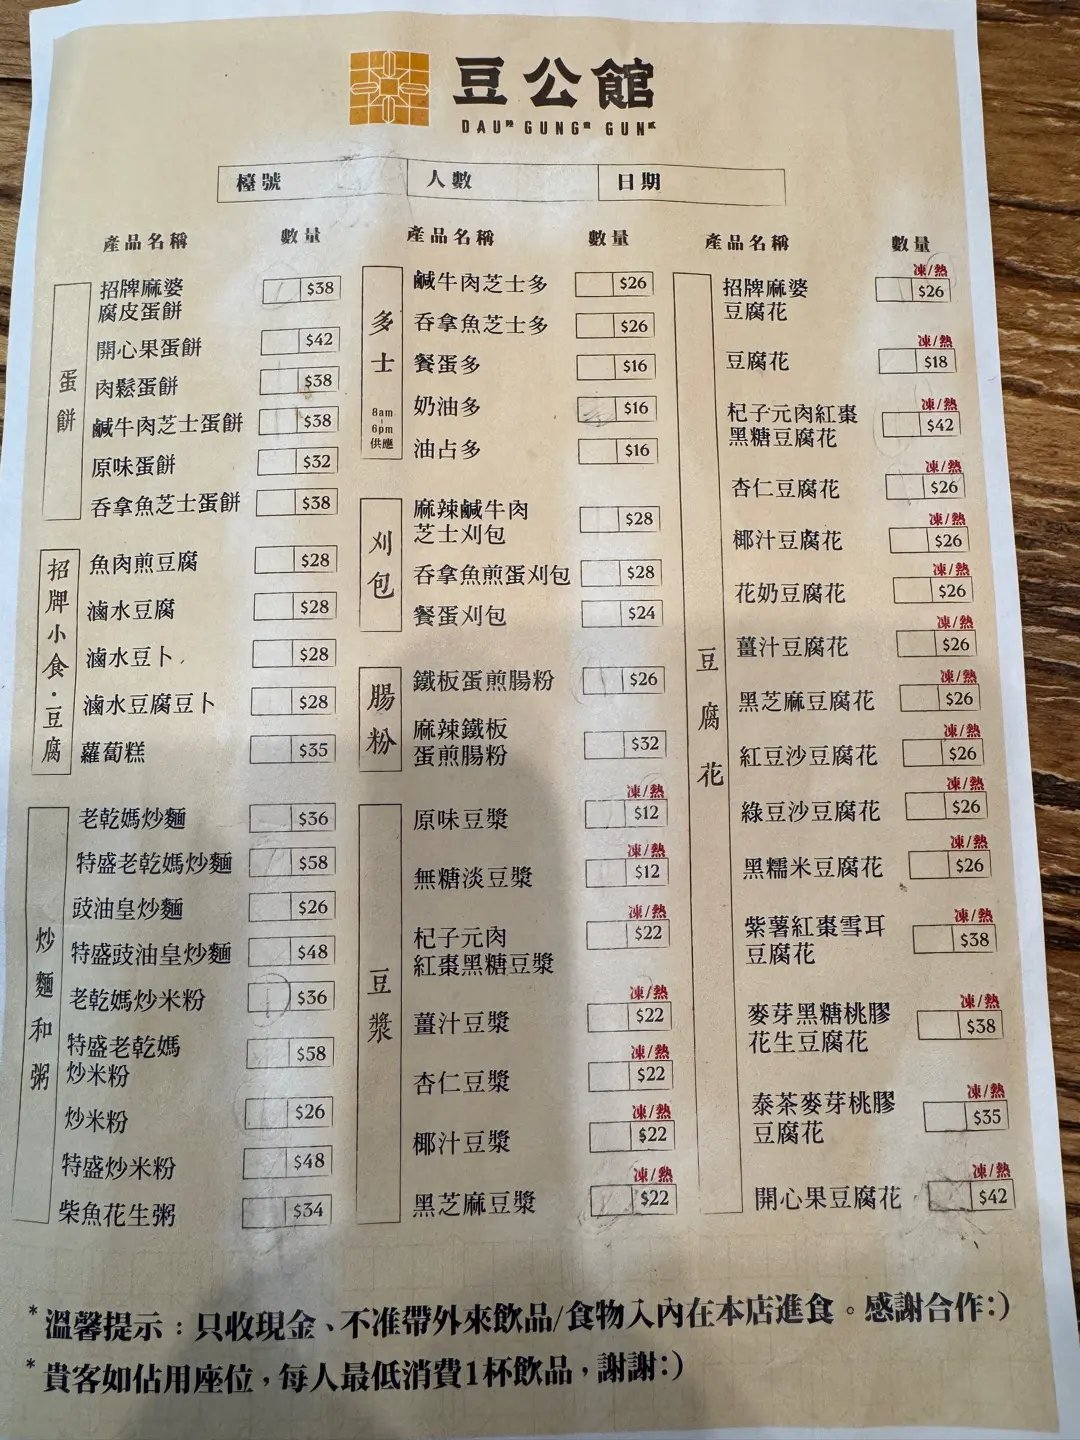 豆公館
DAU GUNG GUN
檯號 人數 日期
產品名稱 數量
蛋餅
招牌麻婆
腐皮蛋餅 $38
開心果蛋餅 $42
肉鬆蛋餅 $38
鹹牛肉芝士蛋餅 $38
原味蛋餅 $32
吞拿魚芝士蛋餅 $38
招牌小食·豆腐
魚肉煎豆腐 $28
滷水豆腐 $28
滷水豆卜 $28
滷水豆腐豆卜 $28
蘿蔔糕 $35
炒麵和粥
老乾媽炒麵 $36
特盛老乾媽炒麵 $58
豉油皇炒麵 $26
特盛豉油皇炒麵 $48
老乾媽炒米粉 $36
特盛老乾媽
炒米粉 $58
炒米粉 $26
特盛炒米粉 $48
柴魚花生粥 $34
產品名稱 數量
多士
8am
-
6pm
供應
鹹牛肉芝士多 $26
吞拿魚芝士多 $26
餐蛋多 $16
奶油多 $16
油占多 $16
刈包
麻辣鹹牛肉
芝士刈包 $28
吞拿魚煎蛋刈包 $28
餐蛋刈包 $24
腸粉
鐵板蛋煎腸粉 $26
麻辣鐵板
蛋煎腸粉 $32
豆漿
凍/熱
原味豆漿 $12
凍/熱
無糖淡豆漿 $12
凍/熱
杞子元肉 $22
紅棗黑糖豆漿
凍/熱
薑汁豆漿 $22
凍/熱
杏仁豆漿 $22
凍/熱
椰汁豆漿 $22
凍/熱
黑芝麻豆漿 $22
產品名稱 數量
豆腐花
凍/熱
招牌麻婆 $26
豆腐花
凍/熱
豆腐花 $18
凍/熱
杞子元肉紅棗 $42
黑糖豆腐花
凍/熱
杏仁豆腐花 $26
凍/熱
椰汁豆腐花 $26
凍/熱
花奶豆腐花 $26
凍/熱
薑汁豆腐花 $26
凍/熱
黑芝麻豆腐花 $26
凍/熱
紅豆沙豆腐花 $26
凍/熱
綠豆沙豆腐花 $26
凍/熱
黑糯米豆腐花 $26
凍/熱
紫薯紅棗雪耳 $38
豆腐花
凍/熱
麥芽黑糖桃膠 $38
花生豆腐花
凍/熱
泰茶麥芽桃膠 $35
豆腐花
凍/熱
開心果豆腐花 $42
*溫馨提示：只收現金、不准帶外來飲品/食物入內在本店進食。感謝合作:)
*貴客如佔用座位，每人最低消費1杯飲品，謝謝:)